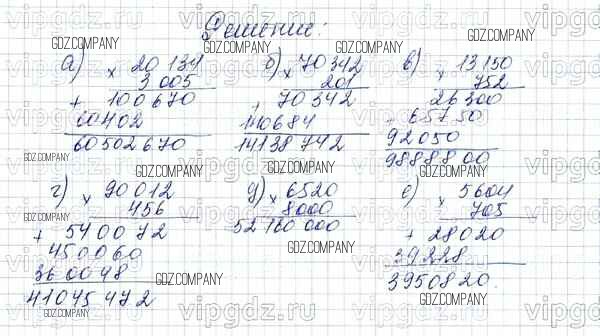 Решение:
а) × 20 134
3 005
+ 100670
60402
60502670
б) × 70 342
201
+ 70 342
140684
14138742
в) × 13 150
752
26 300
+ 65750
92050
9888800
г) × 90 012
456
+ 540072
450060
360048
41045472
д) × 6520
8000
52 160 000
е) × 5604
705
+ 28020
39228
3950820.
GDZ.COMPANY
GDZ.COMPANY
GDZ.COMPANY
GDZ.COMPANY
GDZ.COMPANY
GDZ.COMPANY
GDZ.COMPANY
GDZ.COMPANY
GDZ.COMPANY
GDZ.COMPANY
GDZ.COMPANY
GDZ.COMPANY
GDZ.COMPANY
vipgdz.ru
vipgdz.ru
vipgdz.ru